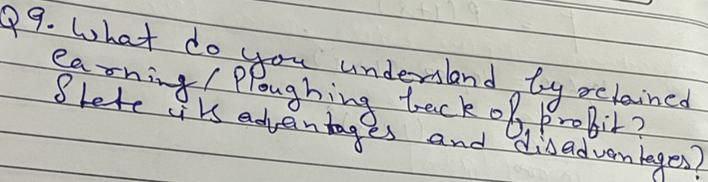 Q9. What do you understand by retained
earning / Ploughing back of profit?
State its advantages and disadvantages?